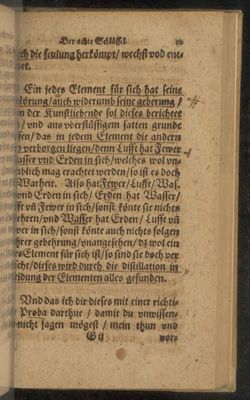 Der achte Schlüssel
ch die feulung herkömpt/ wechst vnd ent-
het.
Ein jedes Element für sich hat seine
störung/ auch widerumb seine geberung/
n der Kunstliebende sol dieses berichtet
/ vnd aus vberflüssigem satten grunde
en/ das in jedem Element die andern
verborgen liegen/ denn Lufft hat Fewer
asser vnd Erden in sich/ welches wol vn-
ublich mag erachtet werden/ so ist es doch
Warheit. Also hat Fewer/ Lufft/ Was.
vnd Erden in sich/ Erden hat Wasser/
fft vñ Fewer in sich/ sonst könte sie nichts
ehren/ vnd Wasser hat Erden/ Lufft vñ
er in sich/ sonst könte auch nichts folgen
hrer gebehrung/ vnangesehen/ dz wol ein
s Element für sich ist/ so sind sie doch ver
scht/ dieses wird durch die distillation in
eidung der Elementen alles gefunden.
Vnd das ich dir dieses mit einer richti-
Proba darthue/ damit du vnwissen-
nicht sagen mögest/ mein thun vnd
G ij vor-